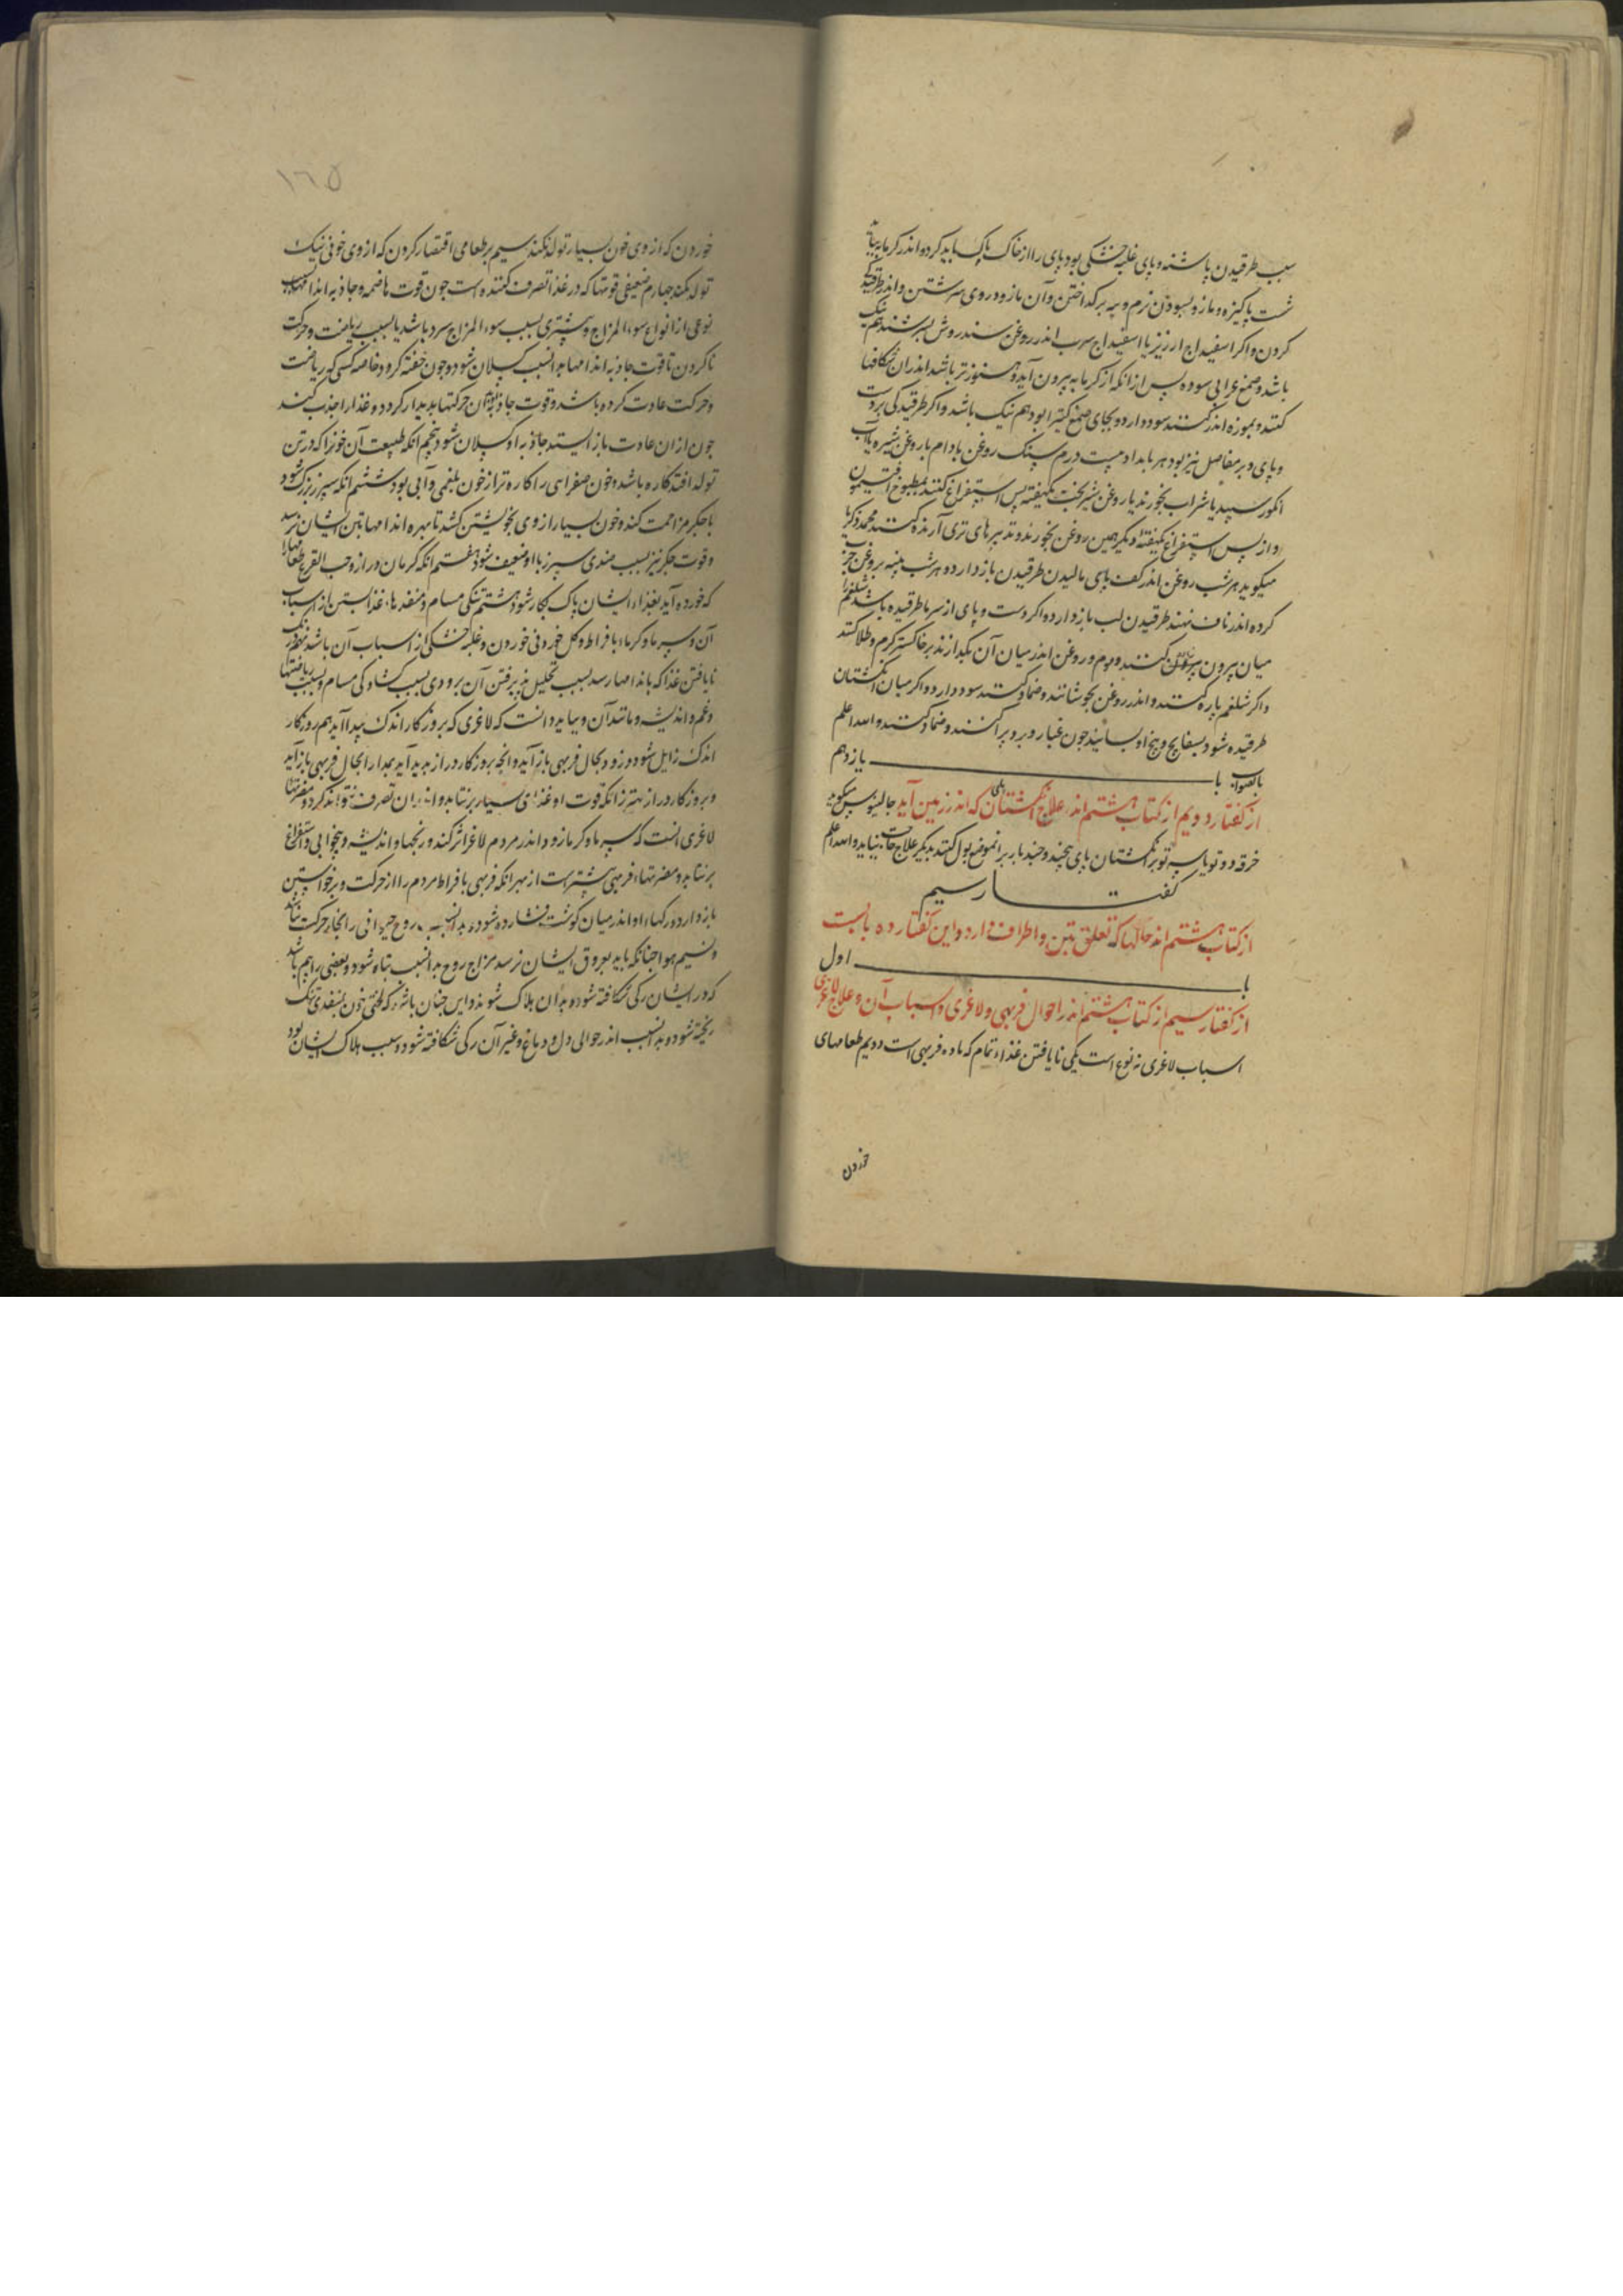 سبب طرقیدن پاشنه و پای غلبه خشکی بود پای را از خاک پاک باید کرد و اندر کرمابه
شست پاکیزه و مازو بسودن نرم و پیه برکداختن و آن مازو در وی سرشتن و اندر طرقیدکی
کردن و اکر اسفیداج ارزیز یا اسفیداج سرب اندر روغن سندروش بسرشند هم نیک
باشد و صمغ عربی سوده پس از انکه از کرمابه بیرون آید و هنوز تر باشد اندران شکافها
کنند و بموزه اندر کنند سود دارد و بجای صمغ کتیرا بود هم نیک باشد و اکر طرقیدکی بر دست
و پای و بر مفاصل نیز بود هر بامداد بیست درم سنک روغن بادام یا روغن شیره با آب
انکور سپید یا شراب بخورند یا روغن شیربخت یکهفته پس استفراغ کنند بمطبوخ افتیمون
و از پس استفراغ یکهفته دیکر همین روغن بخورند و تدبیرهای تری آرنده کنند محمد زکریا
میکوید هر شب روغن اندر کف پای مالیدن طرقیدن باز دارد و هر شب پنبه بروغن چرب
کرده اندر ناف نهند طرقیدن لب باز دارد و اکر دست و پای از سرما طرقیده باشد شلغم را
میان بیرون کنند و موم و روغن اندر میان آن بکدازند بر خاکستر کرم و طلا کنند
و اکر شلغم پاره کنند و اندر روغن بجوشانند و ضماد کنند سود دارد و اکر میان انکشتان
طرقیده شود بسفایج و بیخ او بسایند چون غبار و برو پراکنند و ضماد کنند والله اعلم
بالصواب با یازدهم
از کفتار دویم از کتاب هشتم اندر علاج انکشتان پای که اندر زمین آید جالینوس میکوید
خرقه دو تو یا سه تو بر انکشتان پای پیچند و چند بار بر انموضع بول کنند بدیکر علاج حاجت نیاید والله اعلم
کفتار سیم
از کتاب هشتم اندر حالها که تعلق بتن و اطراف دارد و این کفتار ده بابست
با اول
از کفتار سیم از کتاب هشتم اندر احوال فربهی و لاغری و اسباب آن و علاج لاغری
اسباب لاغری نه نوع است یکی نایافتن غذاء تمام که ماده فربهی است دویم طعامهای
خوردن
١٦٥
خوردن که از وی خون بسیار تولد نکند سیم بر طعامی اقتصار کردن که از وی خونی نیک
تولد نکند چهارم ضعیفی قوتها که در غذا تصرف کننده است چون قوت هاضمه و جاذبه اندامها بسبب
نوعی از انواع سوء المزاج و بیشتری بسبب سوء المزاج سرد باشد یا بسبب ریاضت و حرکت
ناکردن تا قوت جاذبه اندامها بدانسبب کسلان شود و چون خفته کردد خاصه کسی که ریاضت
و حرکت عادت کرده باشد و قوت جاذبه بدان حرکتها بیدار کردد و غذا را جذب کند
چون از ان عادت باز ایستد جاذبه او کسلان شود پنجم انکه طبیعت آن خون را که در تن
تولد افتد کاره باشد و خون صفرایی را کاره تر از خون بلغمی و آبی بود ششم انکه سپرز بزرک شود
با جکر مزاحمت کند و خون بسیار از وی بخویشتن کشد تا بهره اندامها بتن ایشان نرسد
و قوت جکر نیز بسبب ضدی سپرز با او ضعیف شود هفتم انکه کرمان دراز و حب القرع طعامها را
که خورده آید بغذاء ایشان پاک بکار شود هشتم تنکی مسام و منفذها، غذا بستن از اسباب
آن و سرما و کرماء بافراط و کل خوردنی خوردن و غلبه خشکی از اسباب آن باشد نهم
نایافتن غذا که باندامها رسد بسبب تحلیل پذیرفتن آن بزودی بسبب کشادکی مسام و بسبب ریاضتها
و غم و اندیشه و مانند آن و بباید دانست که لاغری که بروزکار اندک پیدا آید هم روزکار
اندک زایل شود و زود بحال فربهی باز آید و انچه بروزکار دراز پدید آید بمدارا بحال فربهی باز آید
و بروزکار دراز بهتر زانکه قوت او غذای بسیار برنتابد و اندران تصرف نتواند کرد و مضرتهاء
لاغری انست که سرما و کرما زود اندر مردم لاغر اثر کند و رنجها و اندیشه و بیخوابی و استفراغ
برنتابد و مضرتهاء فربهی بیشترست از بهر انکه فربهی بافراط مردم را از حرکت و برخواستن
باز دارد و رکهاء او اندر میان کوشت فشارده شود و بدانسبب روح حیوانی را انجا حرکت نماند
و نسیم هوا چنانکه باید بعروق ایشان نرسد مزاج روح بدانسبب تباه شود و بعضی را هم باشد
که در ایشان رکی شکافته شود و بدان هلاک شوند و این چنان باشد که لختی خون بمنفذی تنک
ریخته شود و بدانسبب اندر حوالی دل و دماغ و غیر آن رکی شکافته شود و سبب هلاک ایشان بود